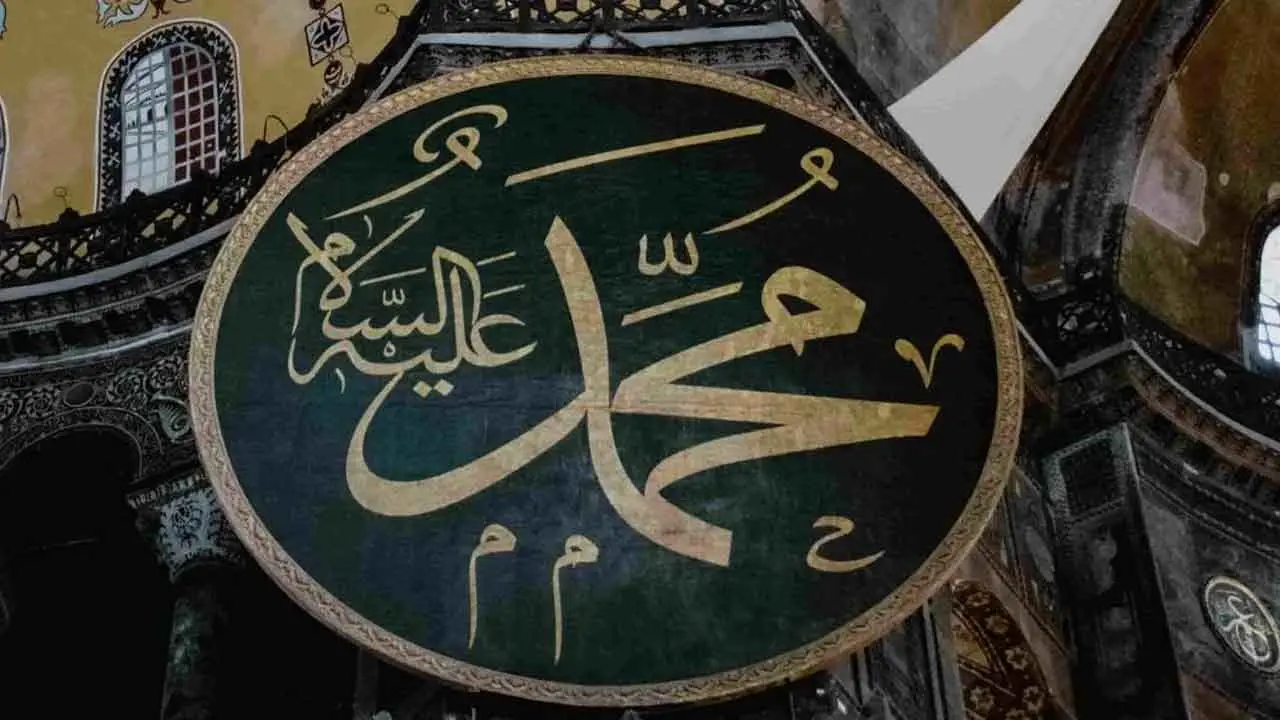 مُحَمَّد
عَلَيْهِ السَّلَام